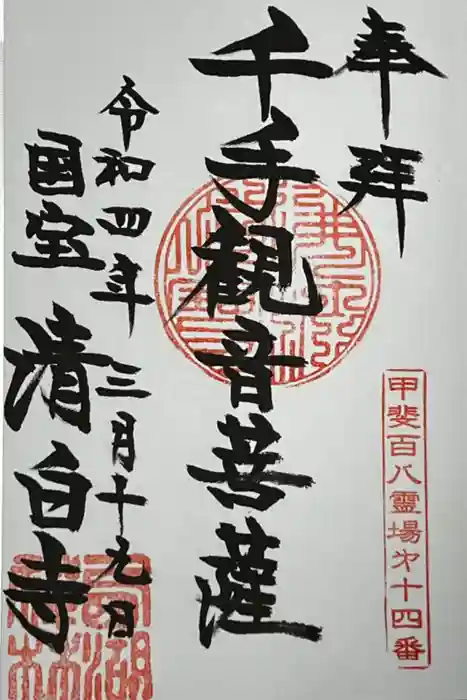 奉拜
甲斐百八靈場第十四番
千手観音菩薩
令和四年三月十九日
国宝 清白寺